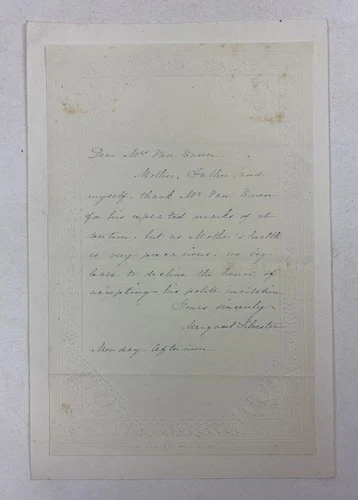 Dear Mrs Van Buren
Mother, Father, and
myself, thank Mr Van Buren
for his repeated marks of at
tention, but as Mother's health
is very precarious, we beg
leave to decline the honor of
accepting his polite invitation
Yours sincerely
Margaret
Monday afternoon